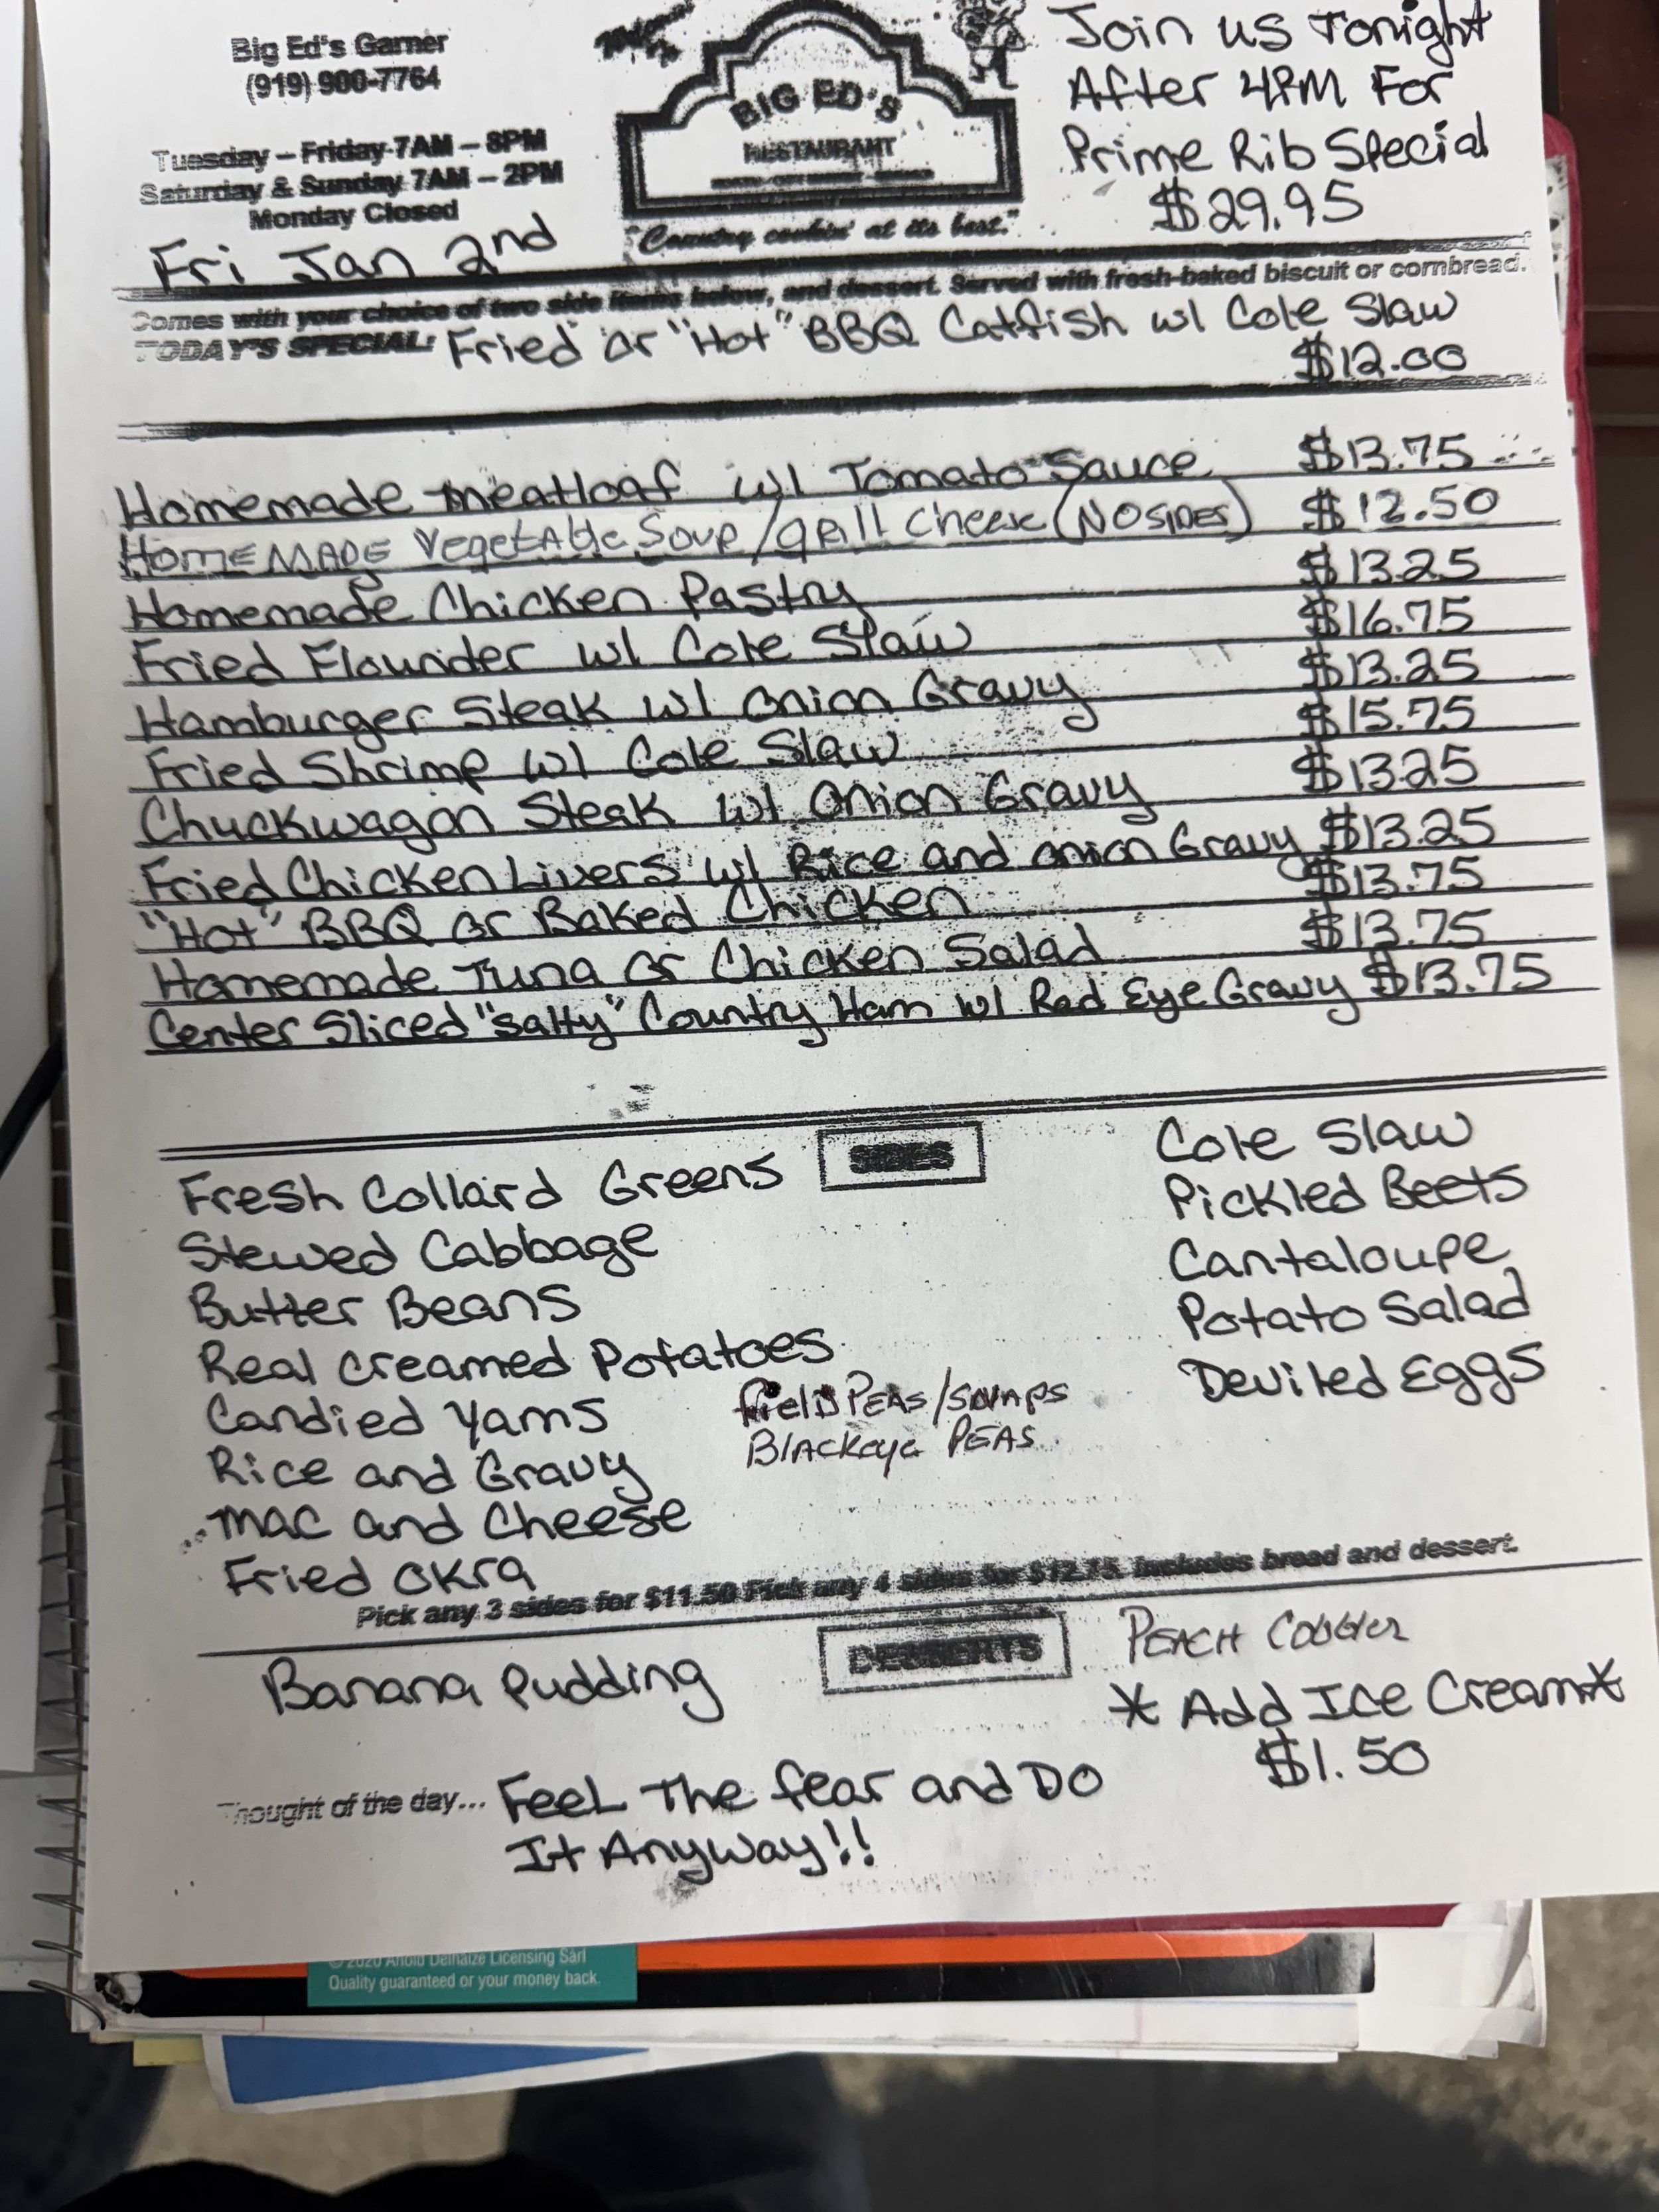 Big Ed's Garner
(919) 900-7764
Tuesday – Friday 7AM – 8PM
Saturday & Sunday 7AM – 2PM
Monday Closed
Fri Jan 2nd
BIG ED'S
RESTAURANT
"Country cookin' at its best."
Join us Tonight
After 4PM For
Prime Rib Special
$29.95
Comes with your choice of two side items below, and dessert. Served with fresh-baked biscuit or cornbread.
TODAY'S SPECIAL: Fried or "Hot" BBQ Catfish w/ Cole Slaw
$12.00
Homemade meatloaf w/ Tomato Sauce $13.75
HomEMADE VegetAble Soup/grill Cheese (NO SIDES) $12.50
Homemade Chicken Pastry $13.25
Fried Flounder w/ Cole Slaw $16.75
Hamburger Steak w/ Onion Gravy $13.25
Fried Shrimp w/ Cole Slaw $15.75
Chuckwagon Steak w/ Onion Gravy $13.25
Fried Chicken Livers w/ Rice and onion Gravy $13.25
"Hot" BBQ or Baked Chicken $13.75
Homemade Tuna or Chicken Salad $13.75
Center Sliced "Salty" Country Ham w/ Red Eye Gravy $13.75
SIDES
Fresh Collard Greens
Stewed Cabbage
Butter Beans
Real Creamed Potatoes
Candied Yams
Rice and Gravy
Mac and Cheese
Fried Okra
Field PEAS/SNAPS
BlAckeye PEAS
Cole Slaw
Pickled Beets
Cantaloupe
Potato Salad
Deviled Eggs
Pick any 3 sides for $11.50 Pick any 4 sides for $12.75. Includes bread and dessert.
DESSERTS
Banana Pudding
PEACH COBBLER
* Add Ice Cream *
$1.50
Thought of the day... FeeL The fear and DO
It Anyway!!
© 2020 Ahold Delhaize Licensing Sàrl
Quality guaranteed or your money back.